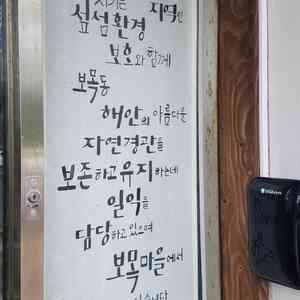 지키는 지역인
섶섬환경
보호와 함께
보목동
해안의 아름다운
자연경관을
보존하고 유지하는데
일익을
담당하고 있으며
보목마을에서
있습니다